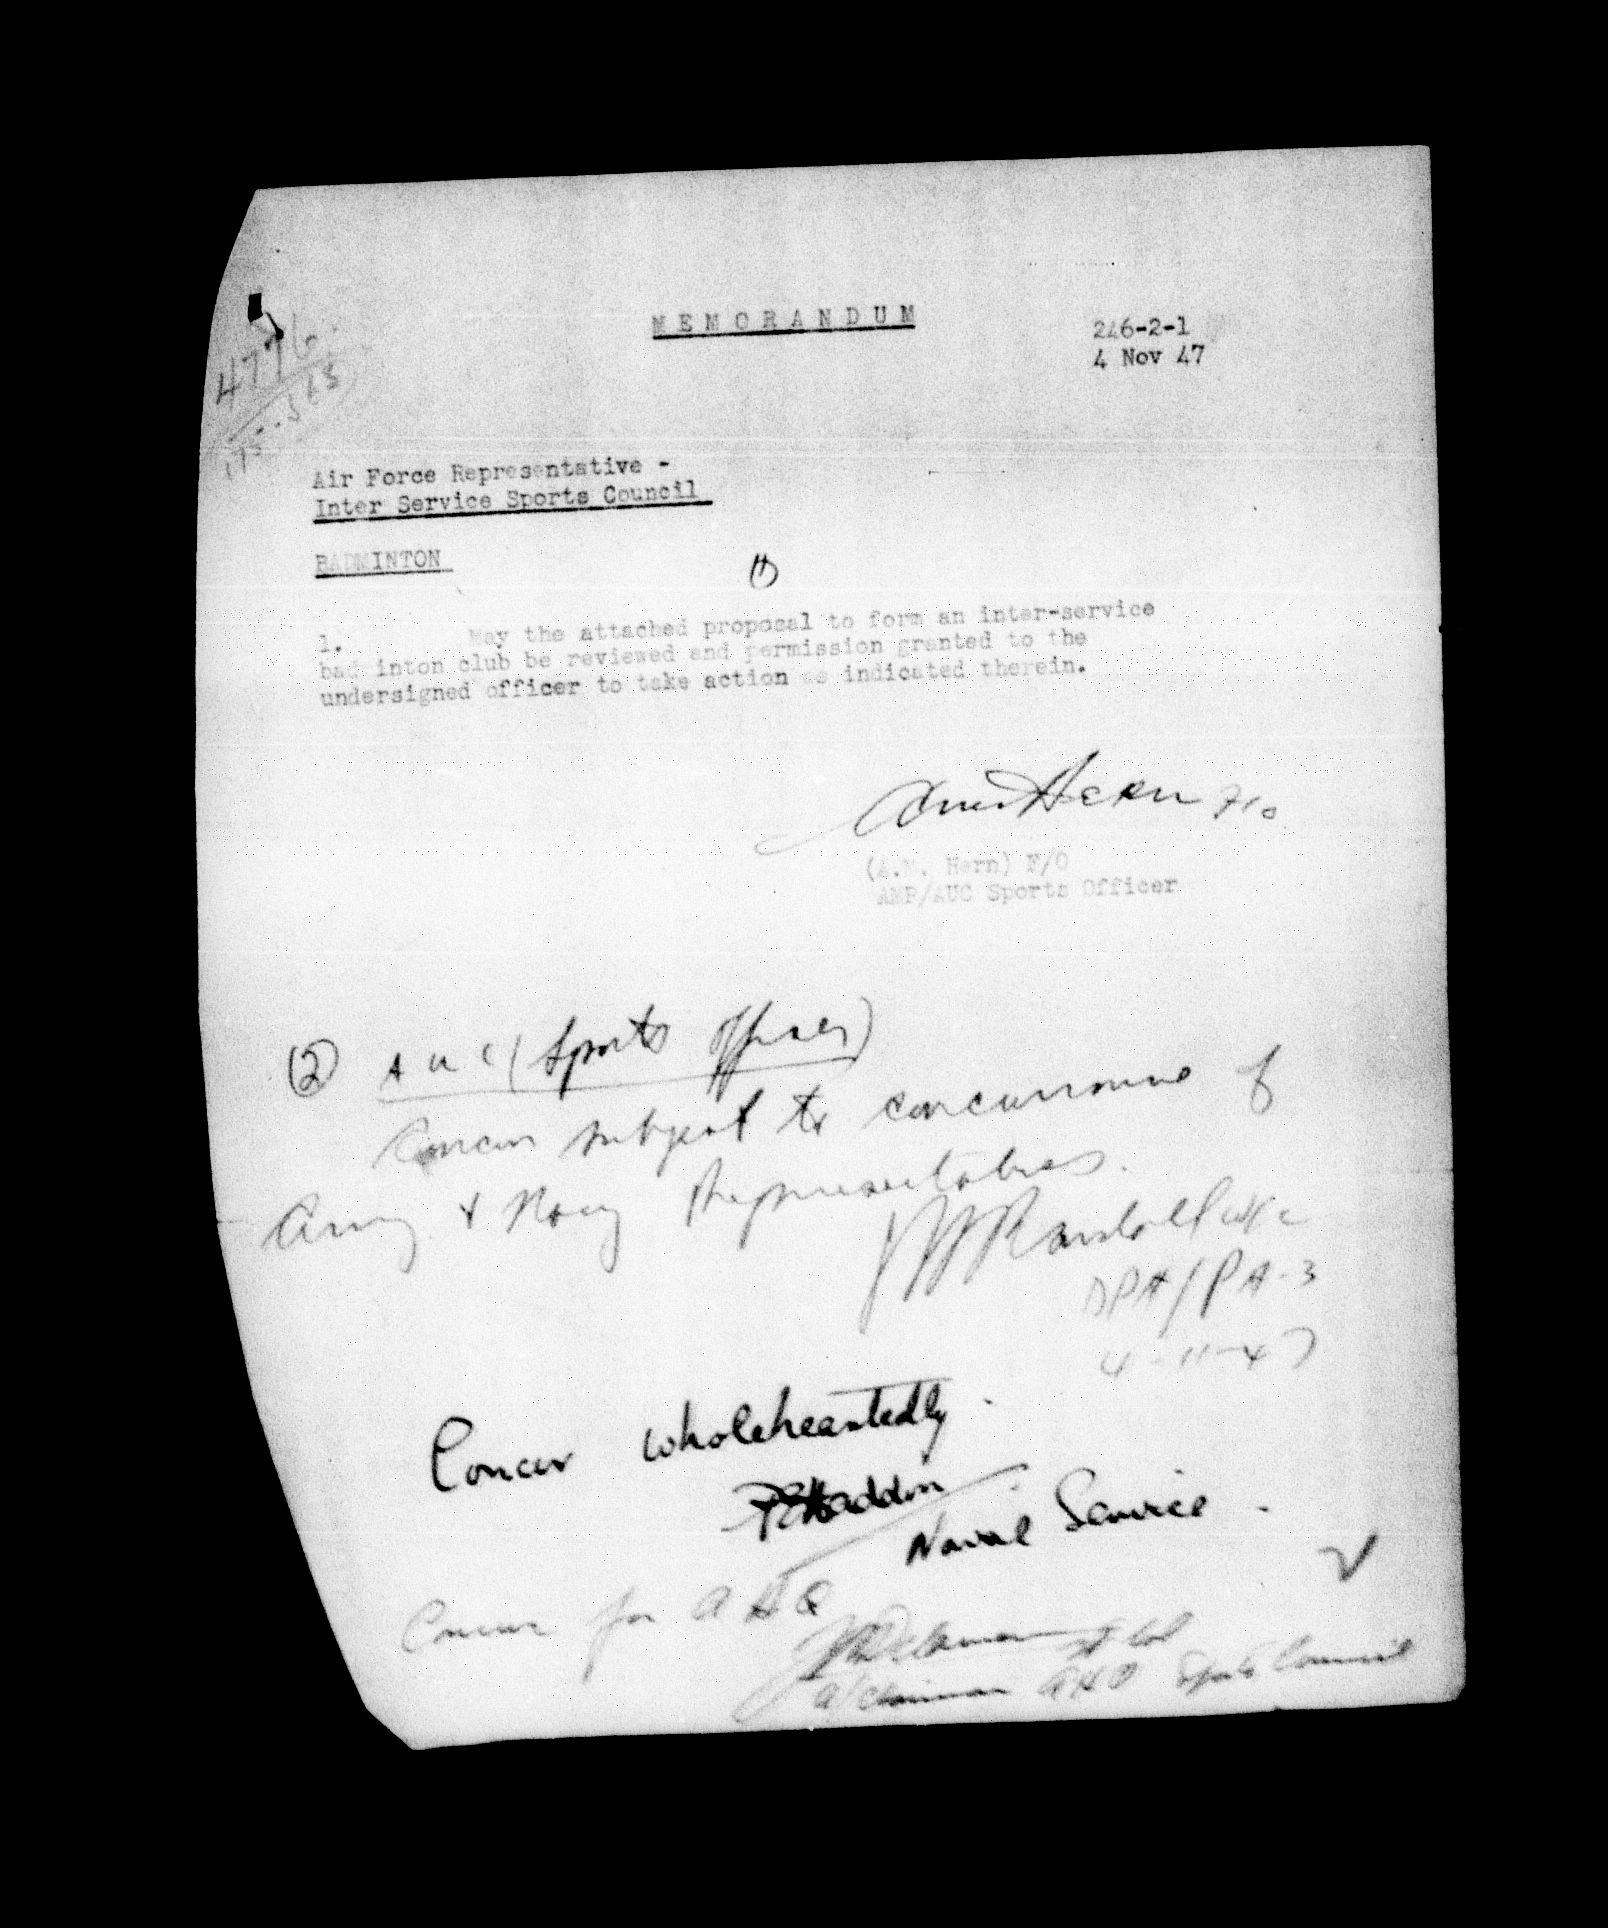 MEMORANDUM
246-2-1
4 Nov 47
4776
Air Force Representative -
Inter Service Sports Council
BADMINTON
(1)
1. May the attached proposal to form an inter-service
badminton club be reviewed and permission granted to the
undersigned officer to take action as indicated therein.
Hern F/O
(A.M. Hern) F/O
AMP/AUC Sports Officer
(2) AUC (Sports Officer)
Concur subject to concurrence of
Army & Navy Representatives.
Randall W/C
DPA/PA-3
4-11-47
Concur wholeheartedly.
Haddon
Naval Service.
Concur for AHQ
A/Chairman AHQ Sports Council